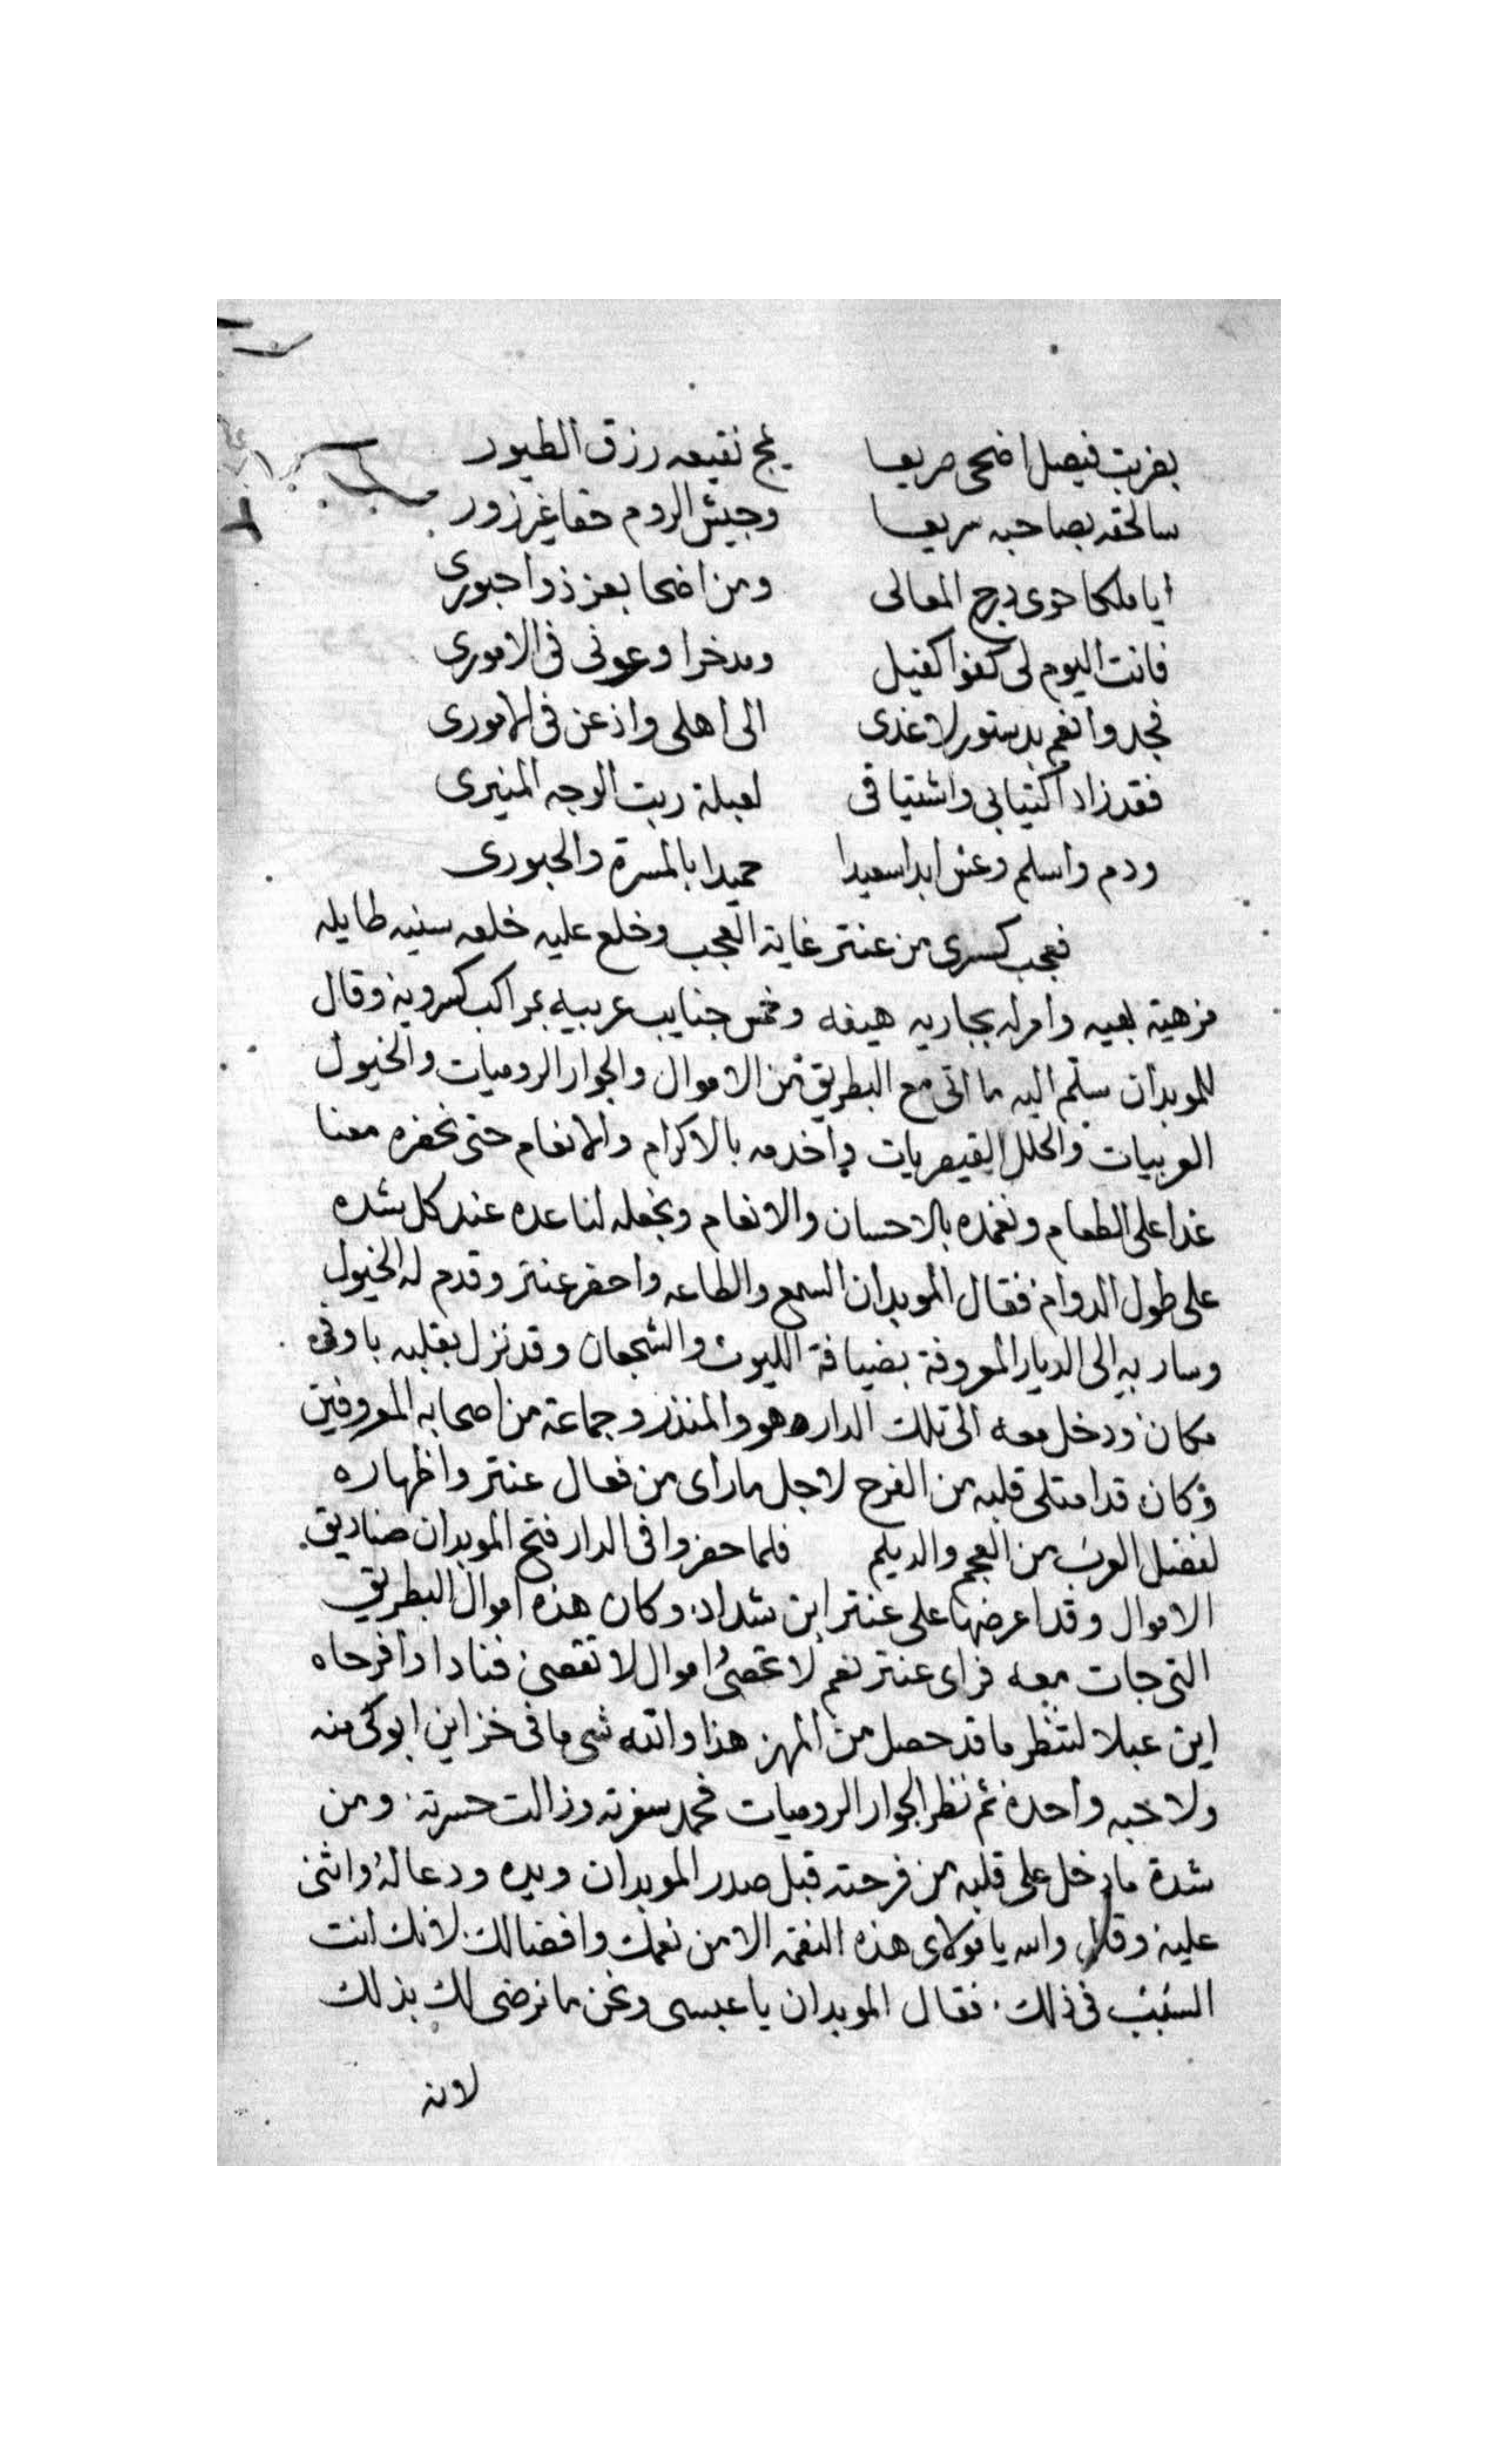 بضربت فيصل اضحى صريعا يمج نقيعه رزق الطيور
سالحقه بصاحبه سريعا وجيش الروم حقا غير زور
ايا ملكا حوى درج المعالى ومن اضحا بعز ذوا حبورى
فانت اليوم لى كفوا كفيل ومدخرا وعونى فى الامورى
فجد وانعم بدستور لاغدى الى اهلى واذعن فى الامورى
فقد زاد اكتيابى واشتياقى لعبلة ربت الوجه المنيرى
ودم واسلم وعش ابدا سعيدا حميدا بالمسرة والحبورى
فعجب كسرى من عنتر غاية العجب وخلع عليه خلعه سنيه طايله
مزهية بهيه وامر له بجاريه هيفه وخمس جنايب عربيه بمراكب كسرويه وقال
للموبدان سلم اليه ما اتى مع البطريق من الاموال والجوار الروميات والخيول
العربيات والحلل القيصريات واخدمه بالاكرام والانعام حتى نحضره معنا
غدا على الطعام ونغمده بالاحسان والانعام ونجعله لنا عده عند كل شده
على طول الدوام فقال الموبدان السمع والطاعه واحضر عنتر وقدم له الخيول
وسار به الى الديار المعروفة بضيافة الليوث والشجعان وقد نزل بقلبه باوفى
مكان ودخل معه الى تلك الداره هو والمنذر وجماعة من اصحابه المعروفين
وكان قد امتلى قلبه من الفرح لاجل ما راى من فعال عنتر واظهاره
لفضل العرب من العجم والديلم فلما حضروا فى الدار فتح الموبدان صناديق
الاموال وقد اعرضها على عنتر ابن شداد وكان هذه اموال البطريق
التى جات معه فراى عنتر نعم لا تحصى اموال لا تقصى فنادا وافرحاه
اين عبلا لتنظر ما قد حصل من المهر هذا والله شى ما فى خزاين ابوكى منه
ولا حبه واحده ثم نظر الجوار الروميات فحمد سفرته وزالت حسرته ومن
شدة ما دخل على قلبه من فرحته قبل صدر الموبدان ويده ودعا له واثنى
عليه وقال والله يا مولاى هذه النعمه الا من نعمك وافضالك لانك انت
السبب فى ذلك فقال الموبدان يا عبسى ونحن ما نرضى لك بذلك
لانه